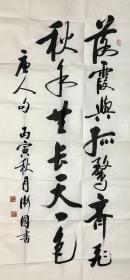 落霞與孤鶩齊飛
秋水共長天一色
唐人句 丙寅秋月 國書